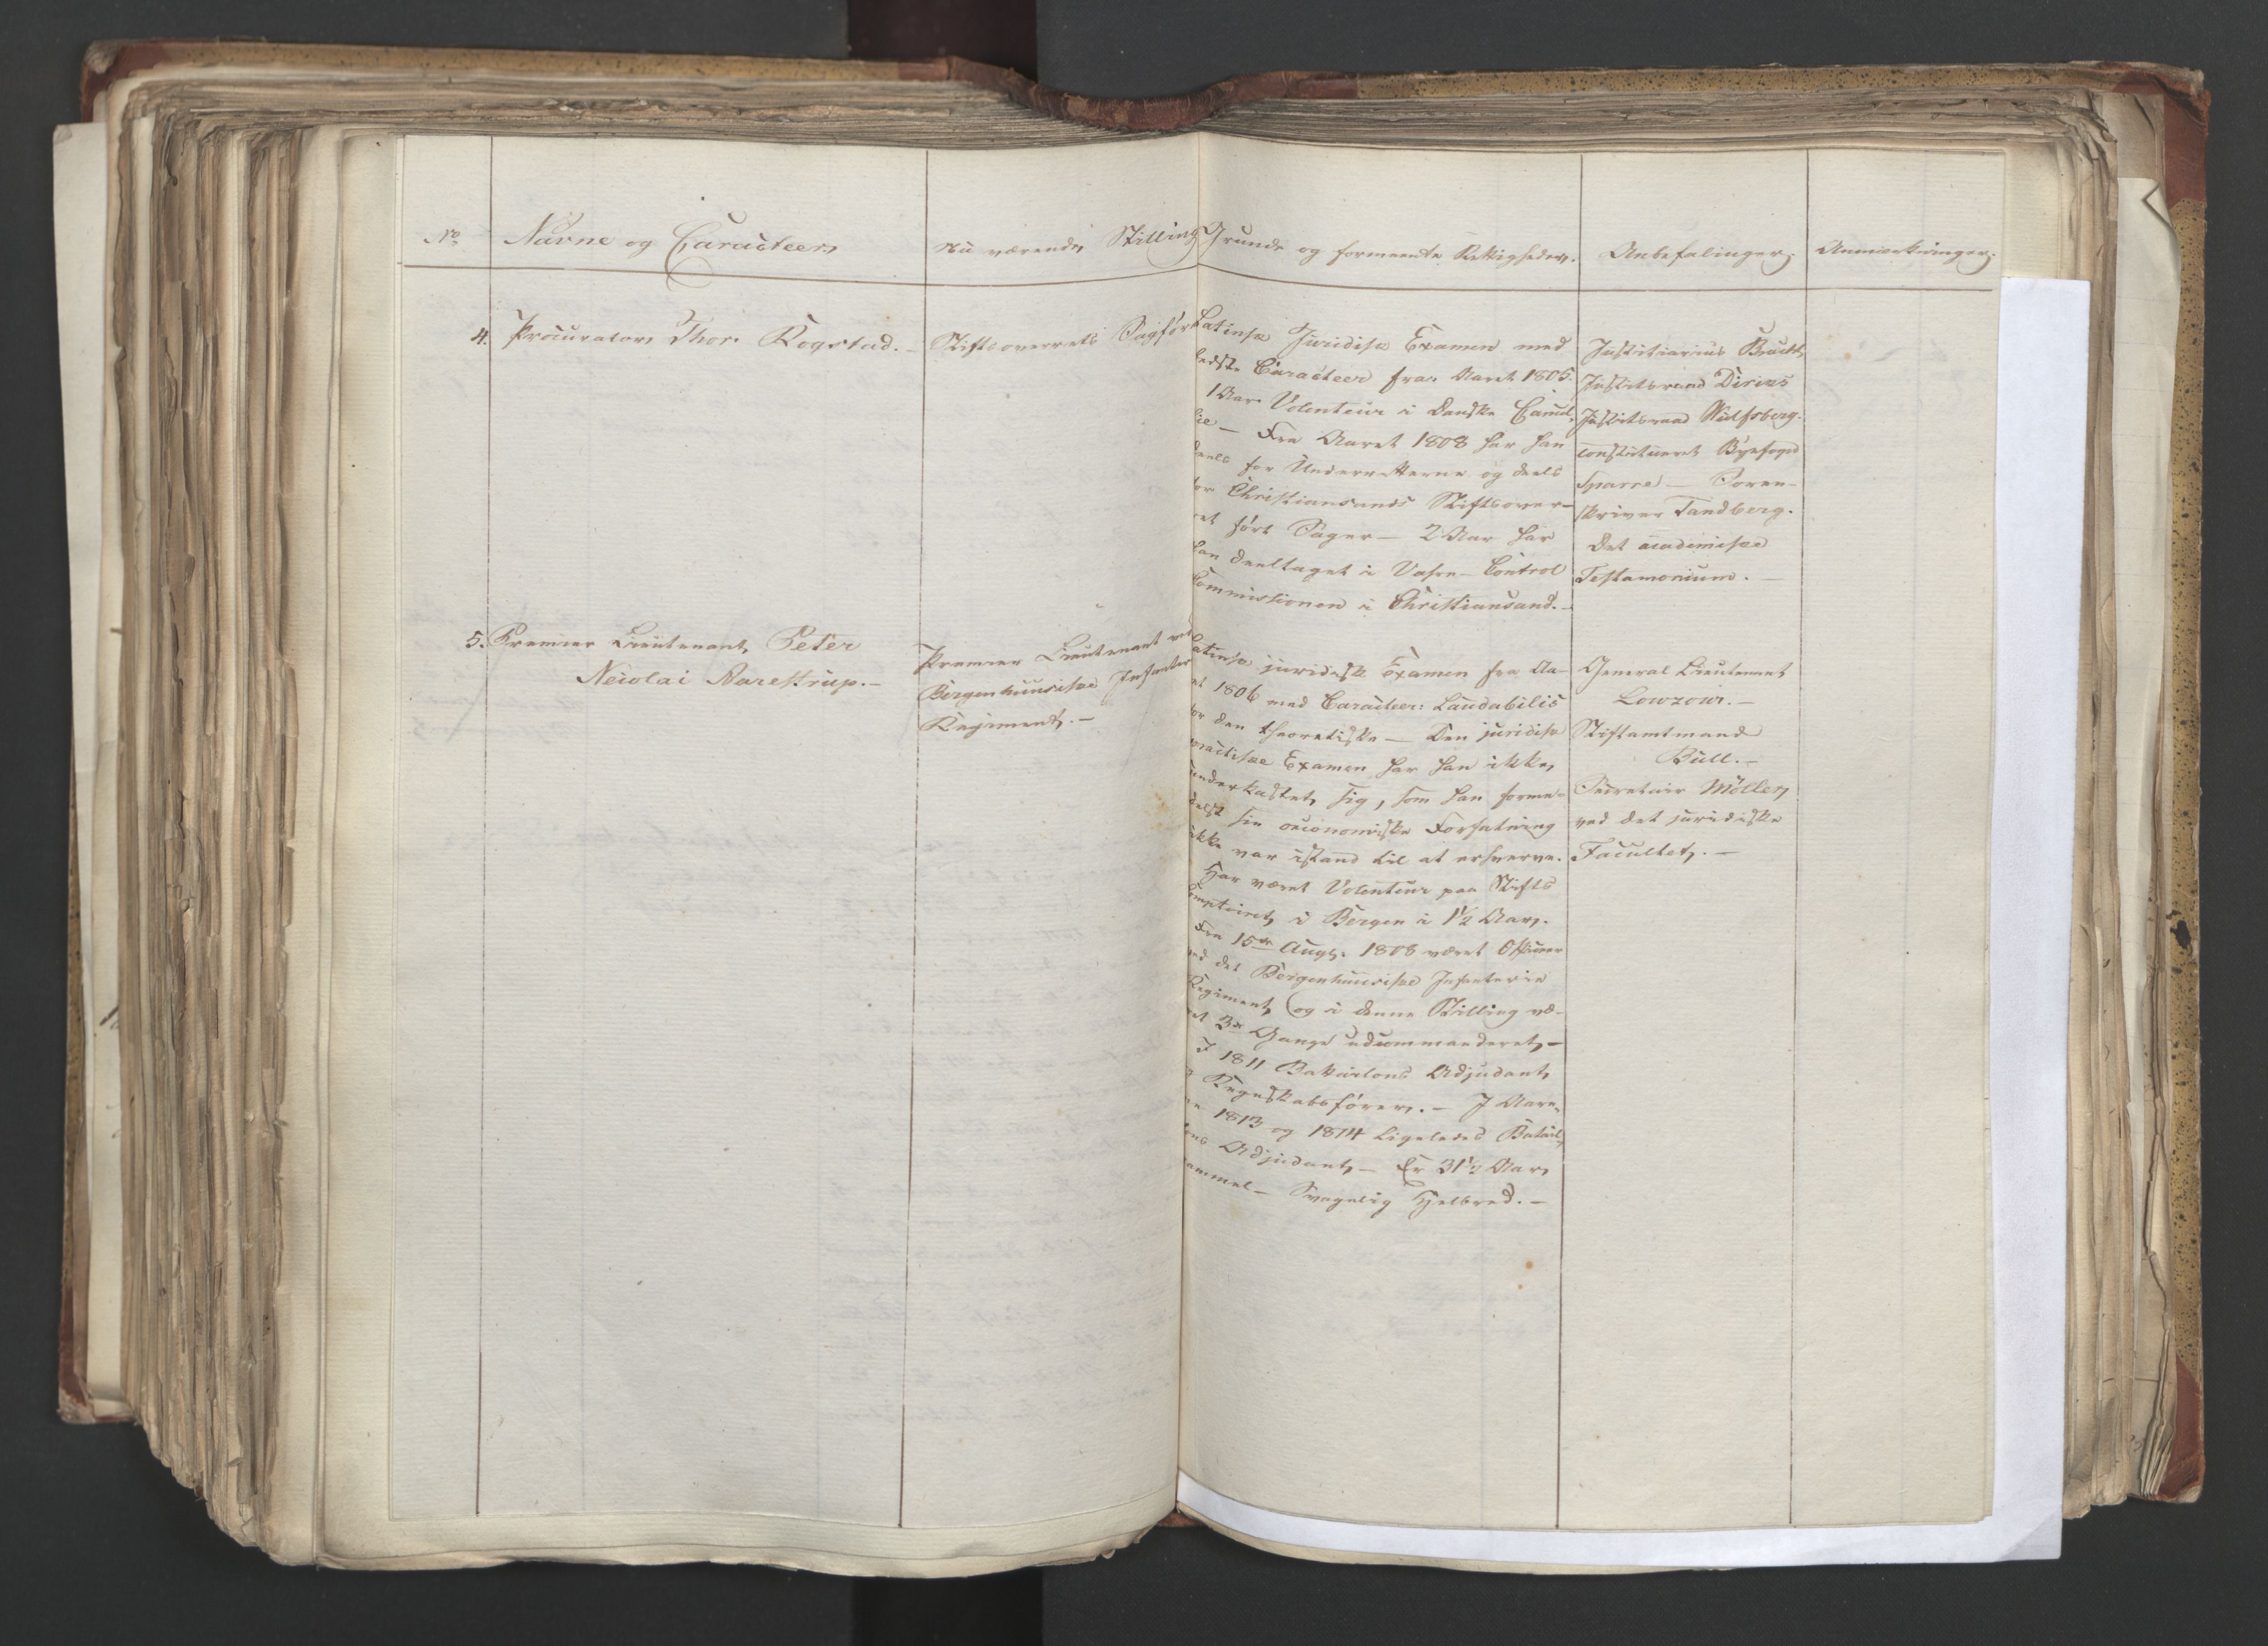 No
Navne og Caracteer,
Nu værende Stilling
Grunde og formeente Rettigheder.
Anbefalinger.
Anmærkninger.
4. Procurator Thor Rogstad. —
Stiftsoverrets Sagfør
Latinsk Juridisk Examen med
bedste Caracteer fra Aaret 1805.
1 Aar Volenteur i danske Cancel-
lie — Fra Aaret 1808 har han
deels for Underretterne og deels
for Christiansands Stiftsover-
ret ført Sager — 2 Aar har
han deeltaget i Vahre-Control
Commissionen i Christiansand. —
Justitiarius
Justitsraad
Justitsraad Wulfsberg.
constitueret Byefoged
Sparre — Soren-
skriver Tandberg.
Det academiske
Testamonium. —
5. Premier Lieutenant Peter
Nicolai Aarestrup. —
Premier Lieutenant ved
Bergenhuusiske Infanter
Regiment. —
Latinsk juridisk Examen fra Aa-
ret 1806 med Caracteer: Laudabilis
for den theoretiske — Den juridisk
practiske Examen har han ikke
underkastet sig, som han forme-
delst sin oeconomiske Forfatning
ikke var istand til at erhverve.
Har været Volenteur paa Stifts
Comptoiret i Bergen i 1½ Aar.
Fra 15de Augt. 1808 været Officeer
ved det Bergenhuusiske Infanterie
Regiment, og i denne Stilling væ-
ret 3de Gange udcommanderet, —
I 1811 Bataillons Adjudant
og Regnskabsfører. — I Aare-
ne 1813 og 1814 Ligeledes Batail-
lons Adjudant, — Er 31½ Aar
gammel — Svagelig Helbred. —
General Lieutenant
Lowzow. —
Stiftamtmand
Bull. —
Secretair Möller,
ved det juridiske
Facultet. —